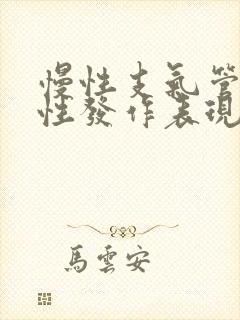 慢性支氣管
性發作表現
馬雲安